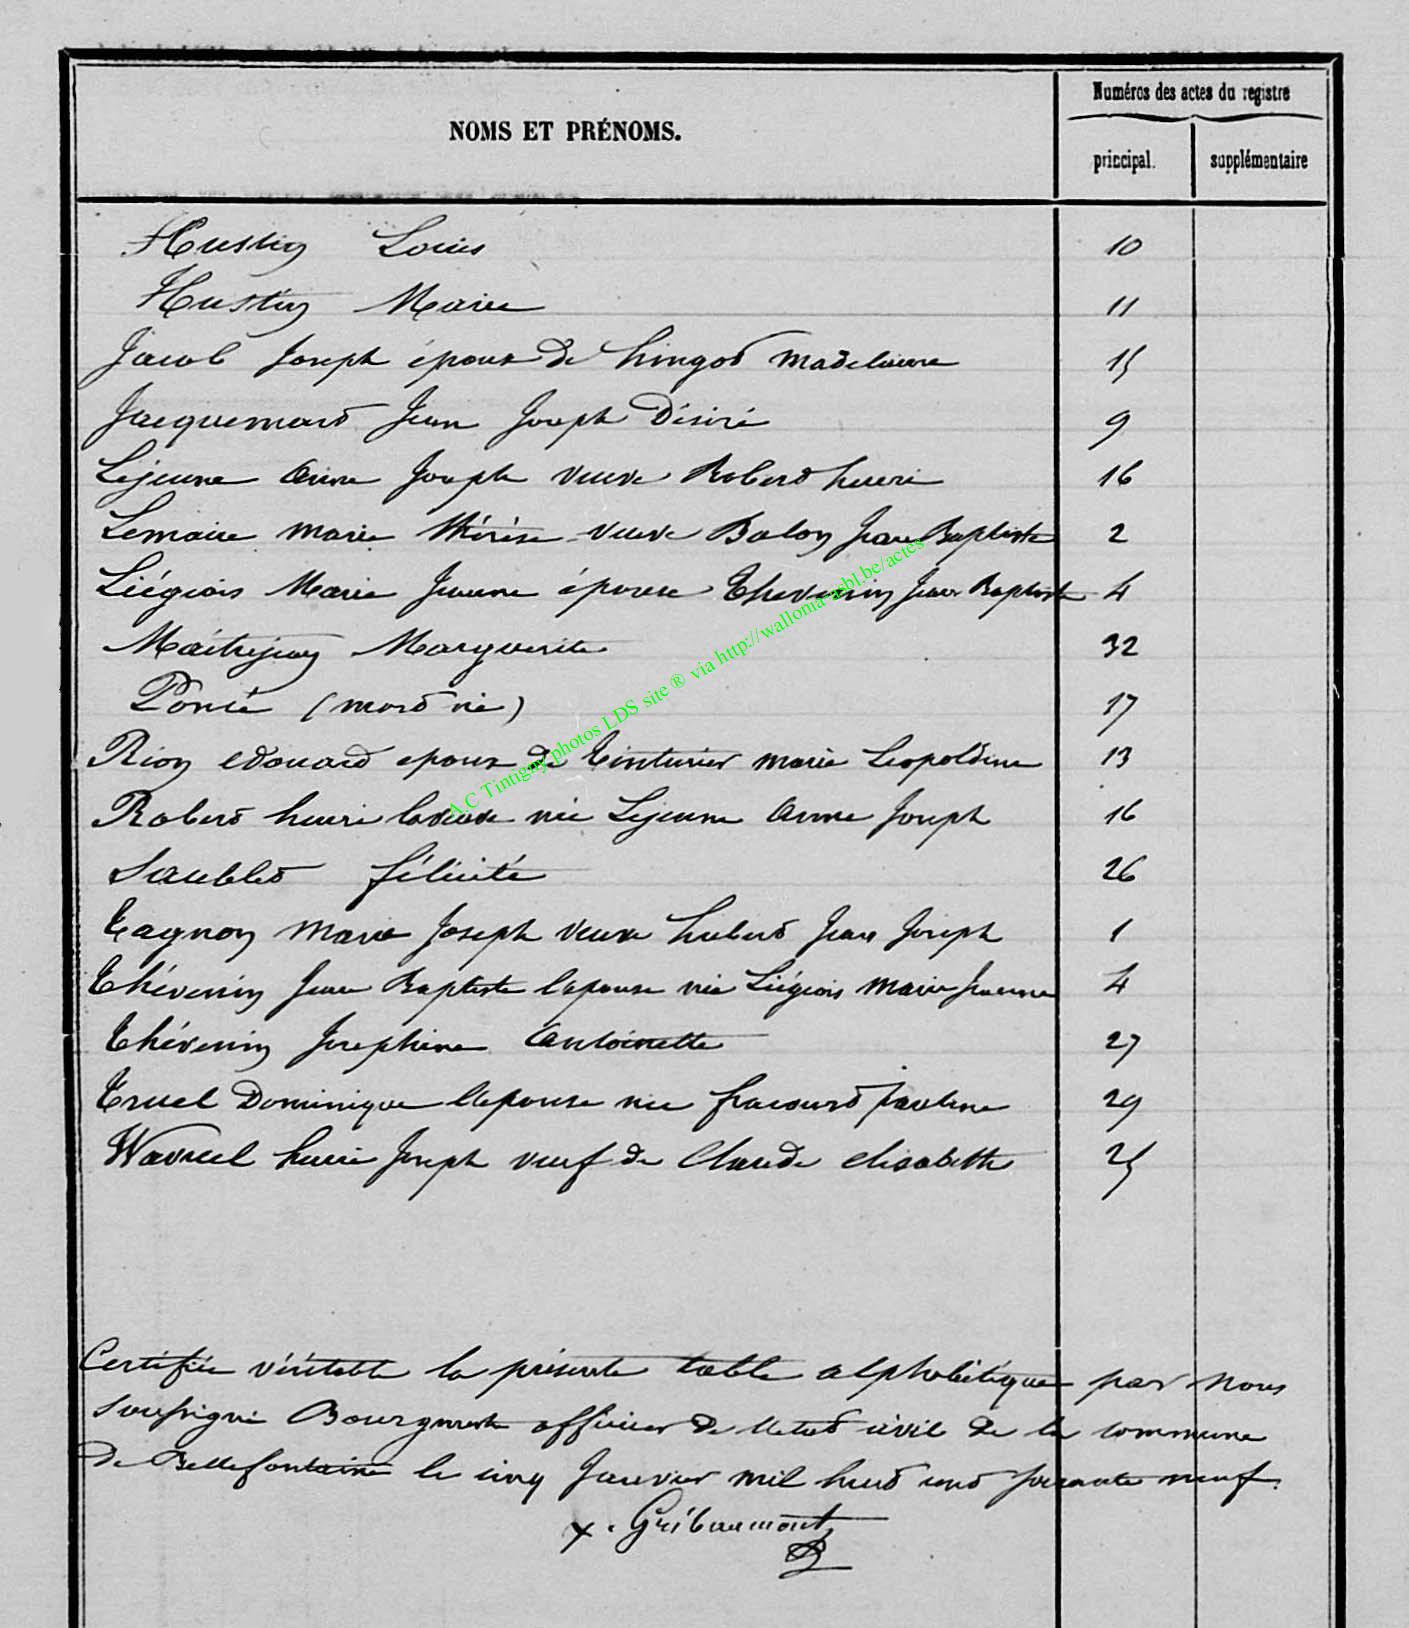 Numéros des actes du registre
NOMS ET PRÉNOMS.
principal. supplémentaire
Hustin Louis 10
Hustin Marie 11
Jacob Joseph époux de hingot Madeleine 15
Jacquemard Jean Joseph Désiré 9
Lejeune Anne Joseph veuve Robert henri 16
Lemaire Marie thérèse veuve Balon Jean Baptiste 2
Liégeois Marie Jeanne épouse Thevenin Jean Baptiste 4
Maitrejean Marguerite 32
Poncé (mort né) 17
Rion edouard epoux de Tinturier marie Leopoldine 13
Robert henri la veuve née Lejeune Anne Joseph 16
Saublet félicité 26
Tagnon Marie Joseph veuve hubert Jean Joseph 1
Thévenin Jean Baptiste lepouse née Liégeois Marie Jeanne 4
Thévenin Josephine Antoinette 27
Truel Dominique lepouse née fracourt pauline 29
Wavreil henri Joseph veuf de Claude elisabeth 25
A.C Tintigny photos LDS site ® via http://wallonia-asbl.be/actes
Certifiée véritable la présente table alphabétique par nous
soussigné Bourgmestre officier de letat civil de la commune
de Bellefontaine le cinq Janvier mil huit cent soixante neuf.
x. Gribaumont